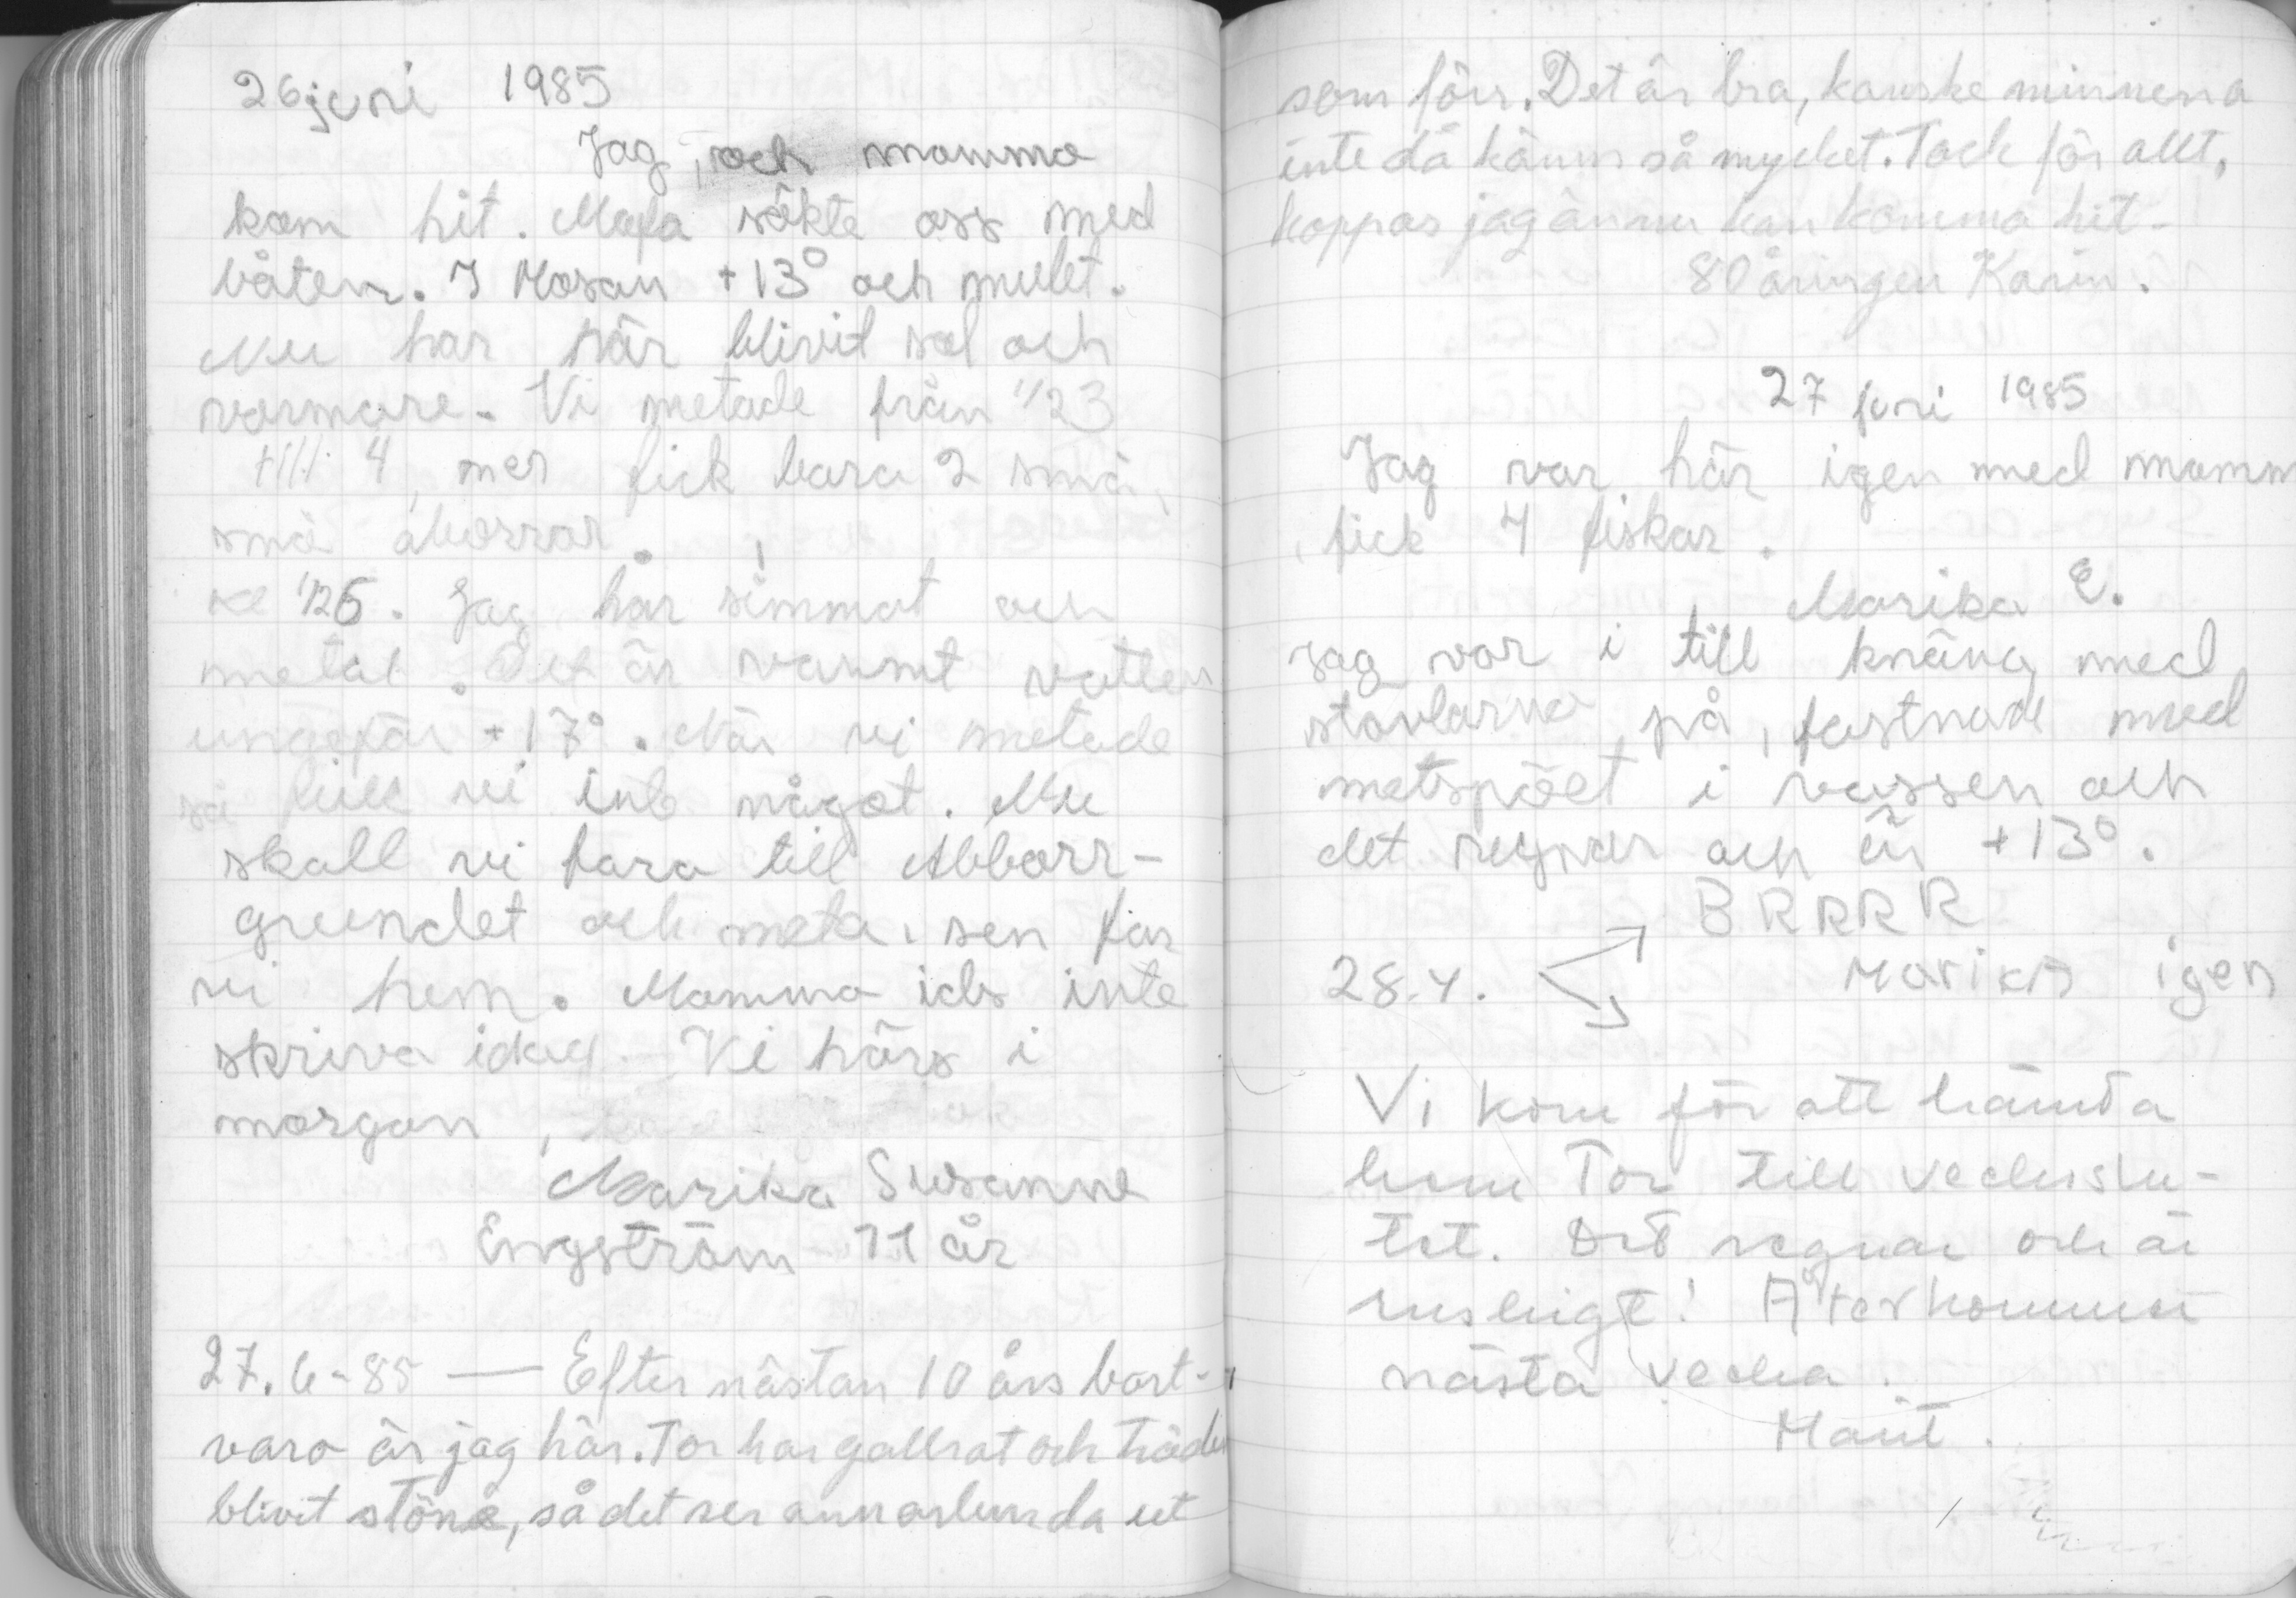 26 juni 1985
Jag, och mamma
kom hit. Mofa sökte oss med
båten. I Mosan +13° och mulet.
Nu har här blivit sol och
varmare. Vi metade från 1/23
till 4, men fick bara 2 små,
små aborrar.
Kl 1/26. Jag har simmat och
metat. Det är varmt vatten
ungefär +17°. När vi metade
så fick vi int något. Nu
skall vi fara till Abborr-
grundet och meta, sen far
vi hem. Mamma ids inte
skriva idag. Vi hörs i
morgon,
Marika Susanne
Engström 11 år
27.6-85 — Efter nästan 10 års bort-
varo är jag här. Tor har gallrat och träden
blivit störe, så det ser annorlunda ut
som förr. Det är bra, kanske minnena
inte då känns så mycket. Tack för allt,
hoppas jag ännu kan komma hit-
80 åringen Karin.
27 juni 1985
Jag var här igen med mamm
fick 4 fiskar.
Marika E.
Jag var i till knäna med
stövlarna på, fastnade med
metspöet i vassen och
det regnar och är +13°.
BRRRR
28.4. Marika igen
Vi kom för att hämta
hem Tor till veckoslu-
tet. Det regnar och är
rusligt! Återkommer
nästa vecka.
Marit.